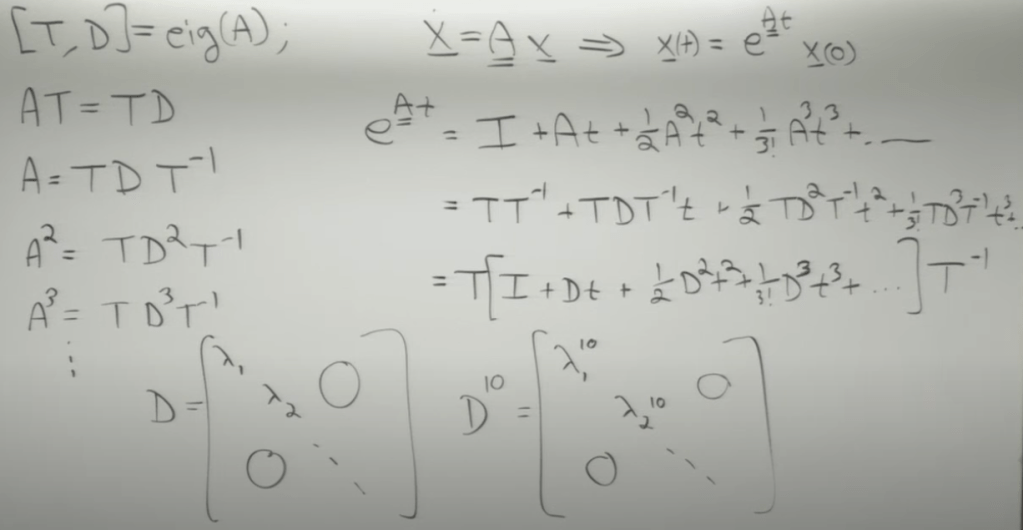 [T, D] = eig(A);
AT = TD
A = T D T⁻¹
A² = T D² T⁻¹
A³ = T D³ T⁻¹
⋮
Ẋ = A x ⇒ x(t) = e^{At} x(0)
e^{At} = I + At + 1/2 A² t² + 1/3! A³ t³ + . —
= T T⁻¹ + T D T⁻¹ t + 1/2 T D² T⁻¹ t² + 1/3! T D³ T⁻¹ t³ + ..
= T [ I + Dt + 1/2 D² t² + 1/3! D³ t³ + ... ] T⁻¹
D = [ λ₁ λ₂ ⋱ 0 0 ]
D¹⁰ = [ λ₁¹⁰ λ₂¹⁰ ⋱ 0 0 ]